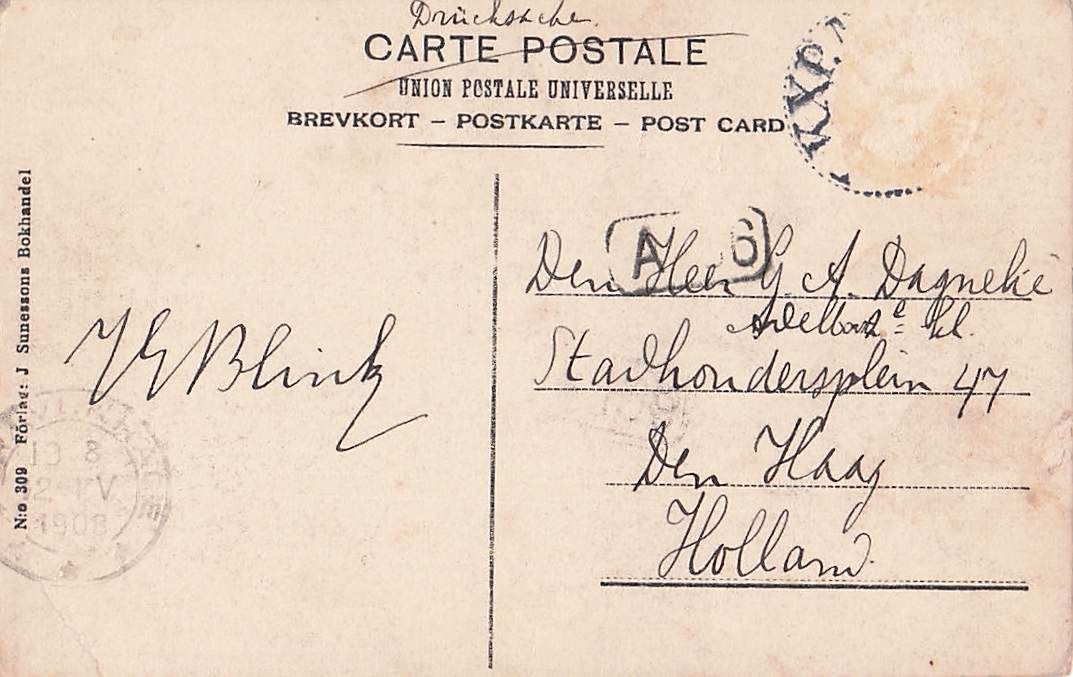 Drucksache.
CARTE POSTALE
UNION POSTALE UNIVERSELLE
BREVKORT – POSTKARTE – POST CARD
PKXP.
A 6
Den Heer G. A. Dagneliè
Adelborst 2e kl.
Stadhoudersplein 47
Den Haag
Holland.
Blink
N:o 309 Förlag: J Sunessons Bokhandel
13 8
1908